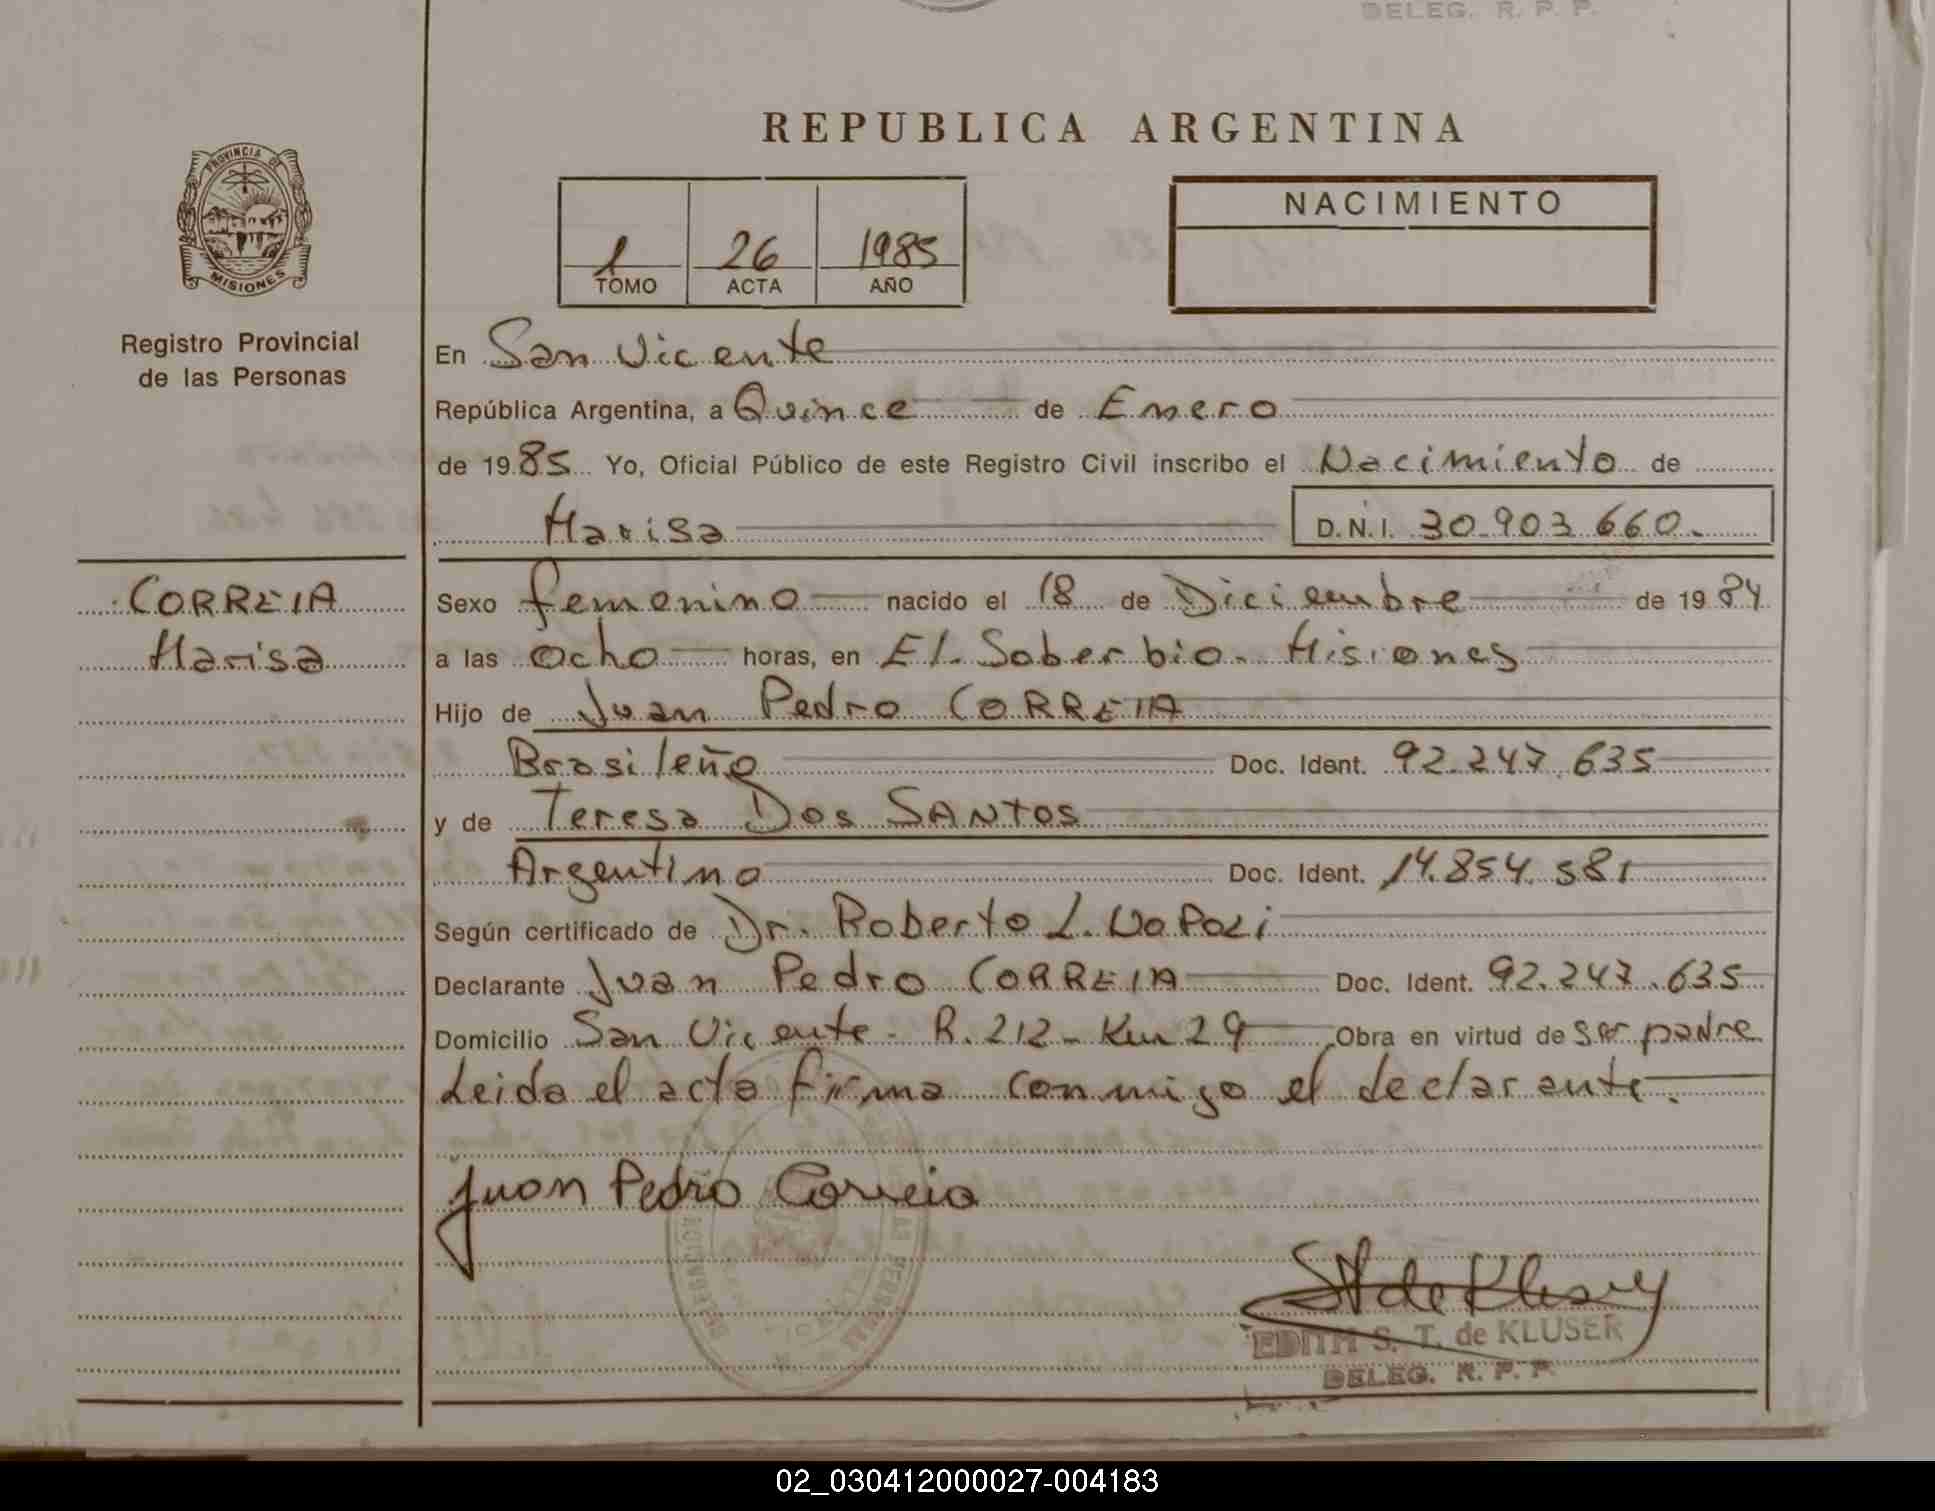 DELEG. R. P. P.
REPUBLICA ARGENTINA
PROVINCIA DE
MISIONES
Registro Provincial
de las Personas
1 26 1985
TOMO ACTA AÑO
NACIMIENTO
En San Vicente
República Argentina, a Quince de Enero
de 19 85 Yo, Oficial Público de este Registro Civil inscribo el Nacimiento de
Marisa D.N.I. 30.903.660.
CORREIA
Marisa
Sexo femenino nacido el 18 de Diciembre de 19 84
a las ocho horas, en El Soberbio. Misiones
Hijo de Juan Pedro CORREIA
Brasileño Doc. Ident. 92.247.635
y de Teresa Dos SANTOS
Argentina Doc. Ident. 14.854.581
Según certificado de Dr. Roberto L.
Declarante Juan Pedro CORREIA Doc. Ident. 92.247.635
Domicilio San Vicente - R. 212 - Km 29 Obra en virtud de ser padre
Leida el acta firma conmigo el declarante.
Juan Pedro Correia
EDITH S. T. de KLUSER
DELEG. R. P. P.
02_030412000027-004183